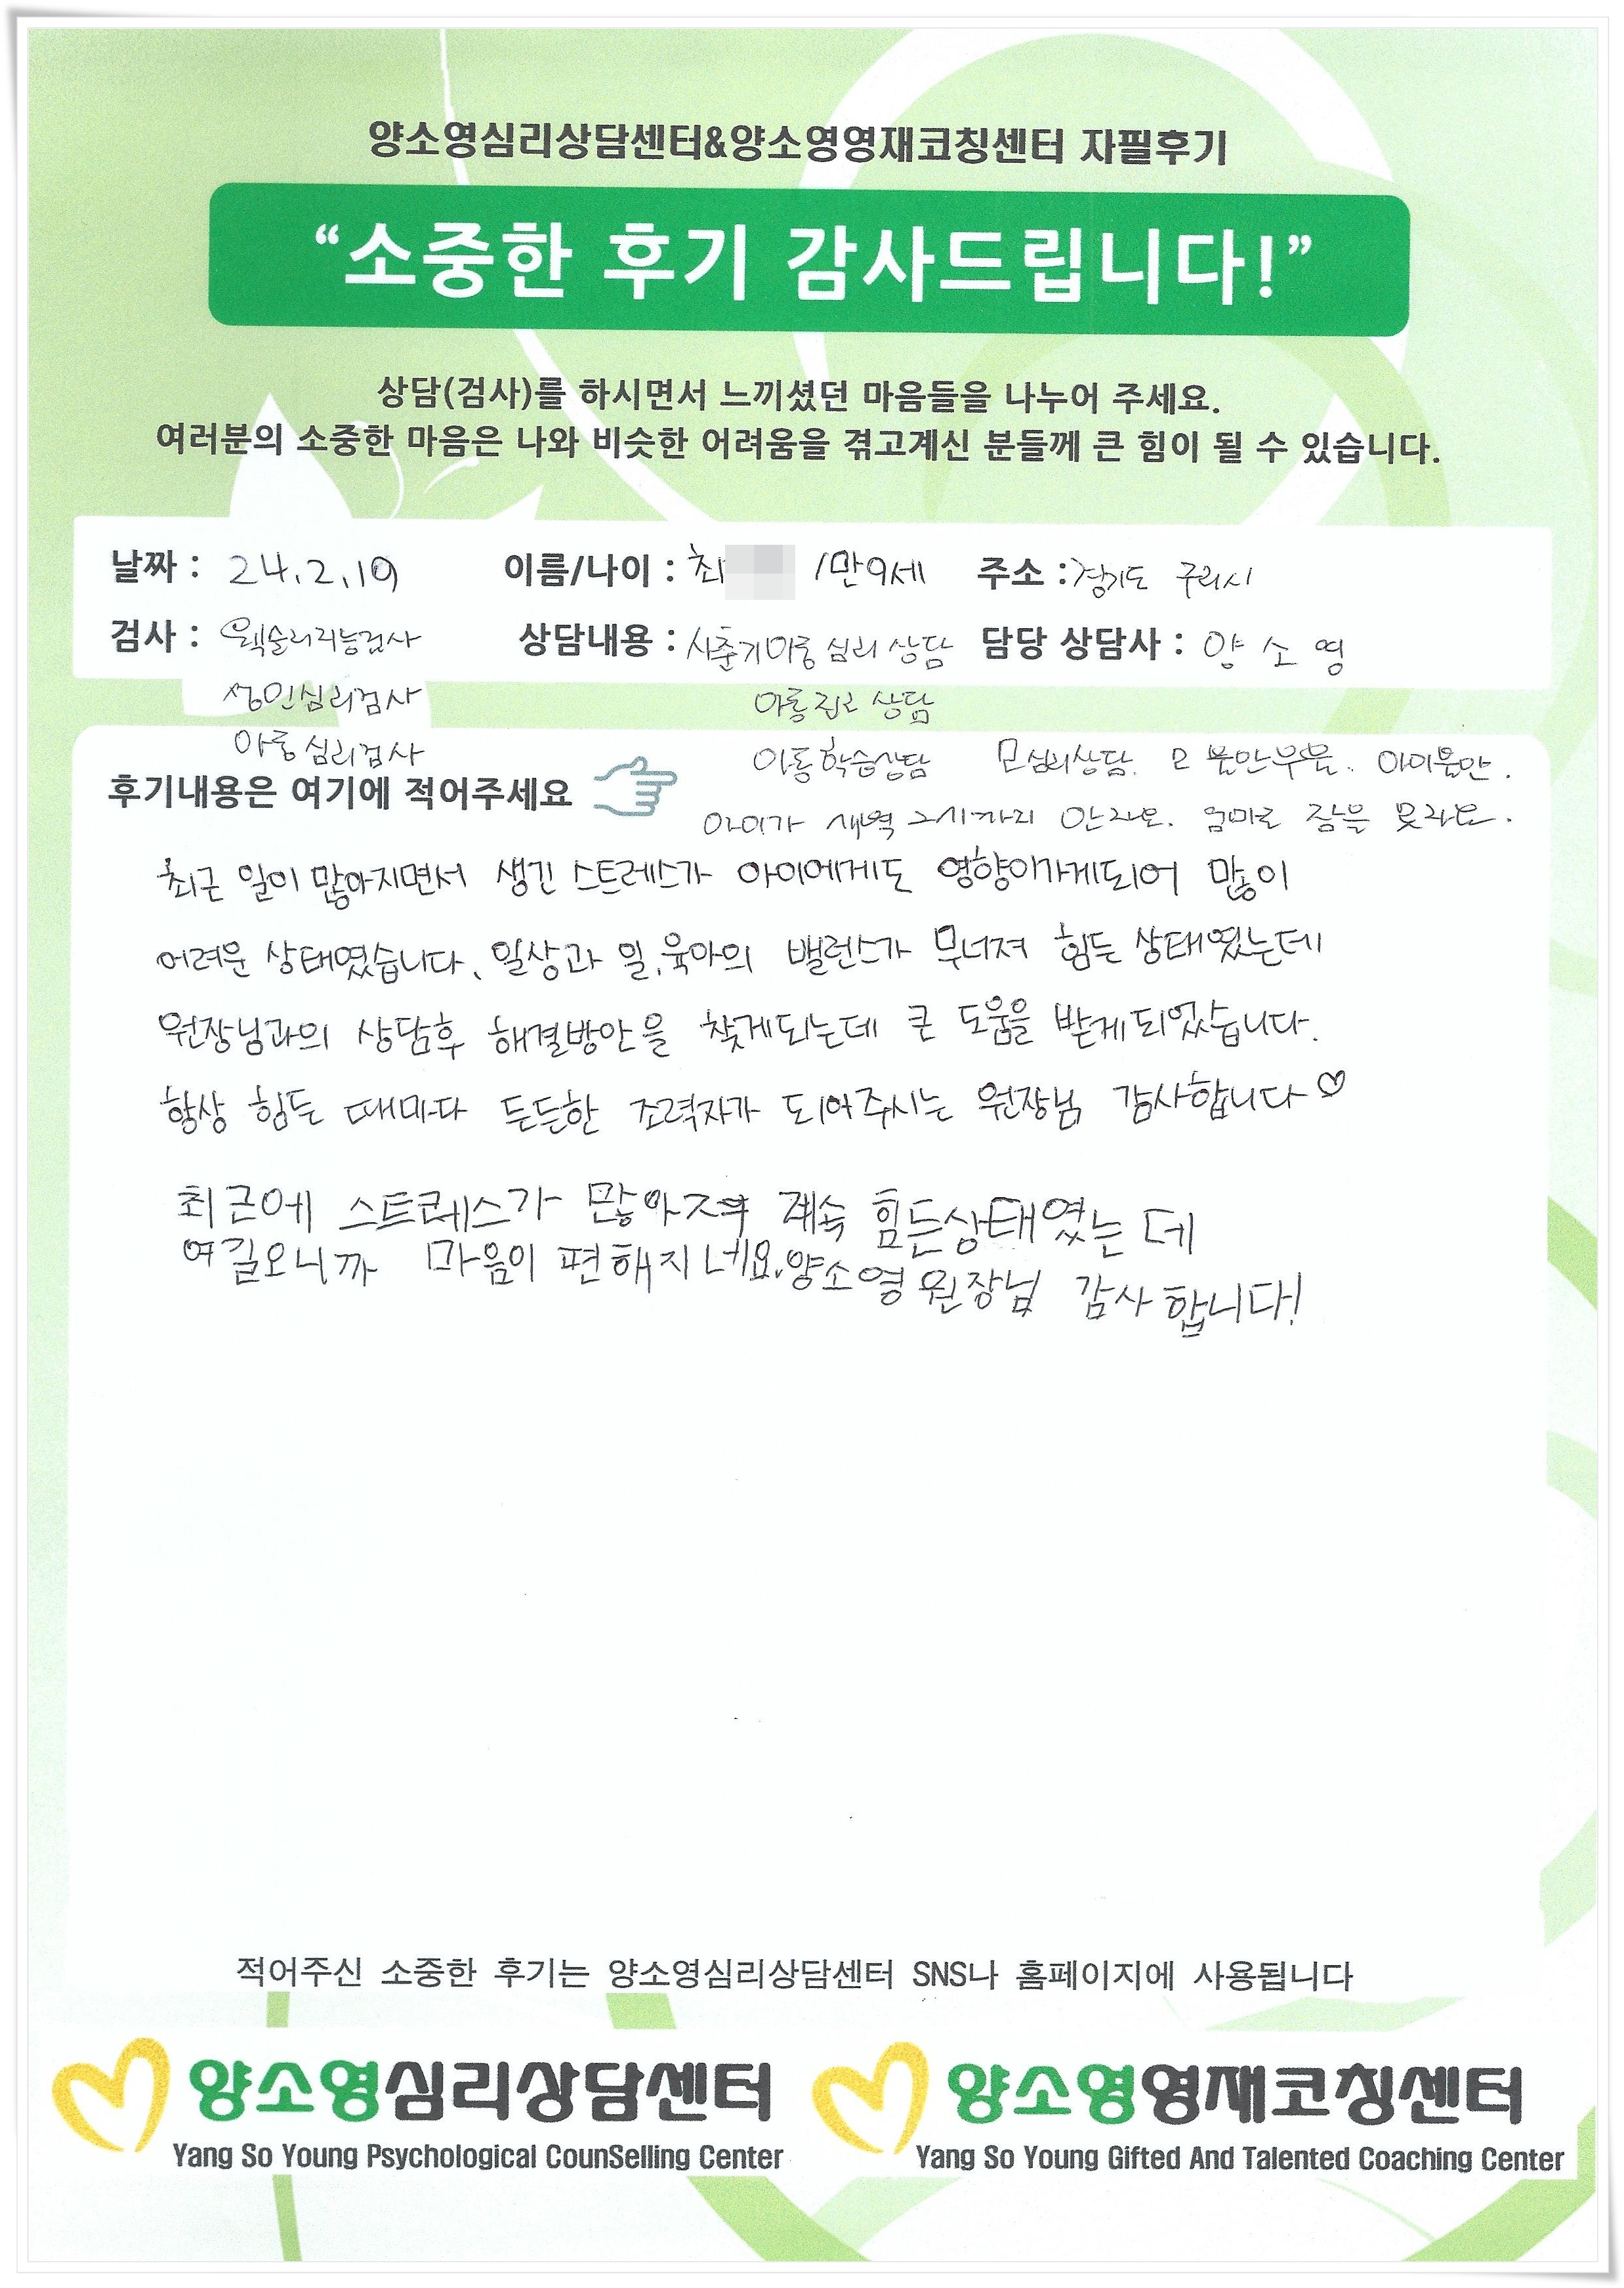 양소영심리상담센터&양소영영재코칭센터 자필후기
“소중한 후기 감사드립니다!”
상담(검사)를 하시면서 느끼셨던 마음들을 나누어 주세요.
여러분의 소중한 마음은 나와 비슷한 어려움을 겪고계신 분들께 큰 힘이 될 수 있습니다.
날짜 : 24.2.19 이름/나이 : 최 /만9세 주소 : 경기도 구리시
검사 : 웩슬러지능검사 상담내용 : 사춘기아동 심리 상담 담당 상담사 : 양소영
성인심리검사 아동 상담
아동심리검사 아동학습상담 모심리상담. 모 불안우울. 아이불안.
후기내용은 여기에 적어주세요 아이가 새벽 2시까지 안자요. 엄마도 잠을 못자요.
최근 일이 많아지면서 생긴 스트레스가 아이에게도 영향이가게되어 많이
어려운 상태였습니다. 일상과 일, 육아의 밸런스가 무너져 힘든 상태였는데
원장님과의 상담후 해결방안을 찾게되는데 큰 도움을 받게되었습니다.
항상 힘든 때마다 든든한 조력자가 되어주시는 원장님 감사합니다♡
최근에 스트레스가 많아져 계속 힘든상태였는데
여길오니까 마음이 편해지네요. 양소영 원장님 감사합니다!
적어주신 소중한 후기는 양소영심리상담센터 SNS나 홈페이지에 사용됩니다
양소영심리상담센터 양소영영재코칭센터
Yang So Young Psychological CounSelling Center Yang So Young Gifted And Talented Coaching Center